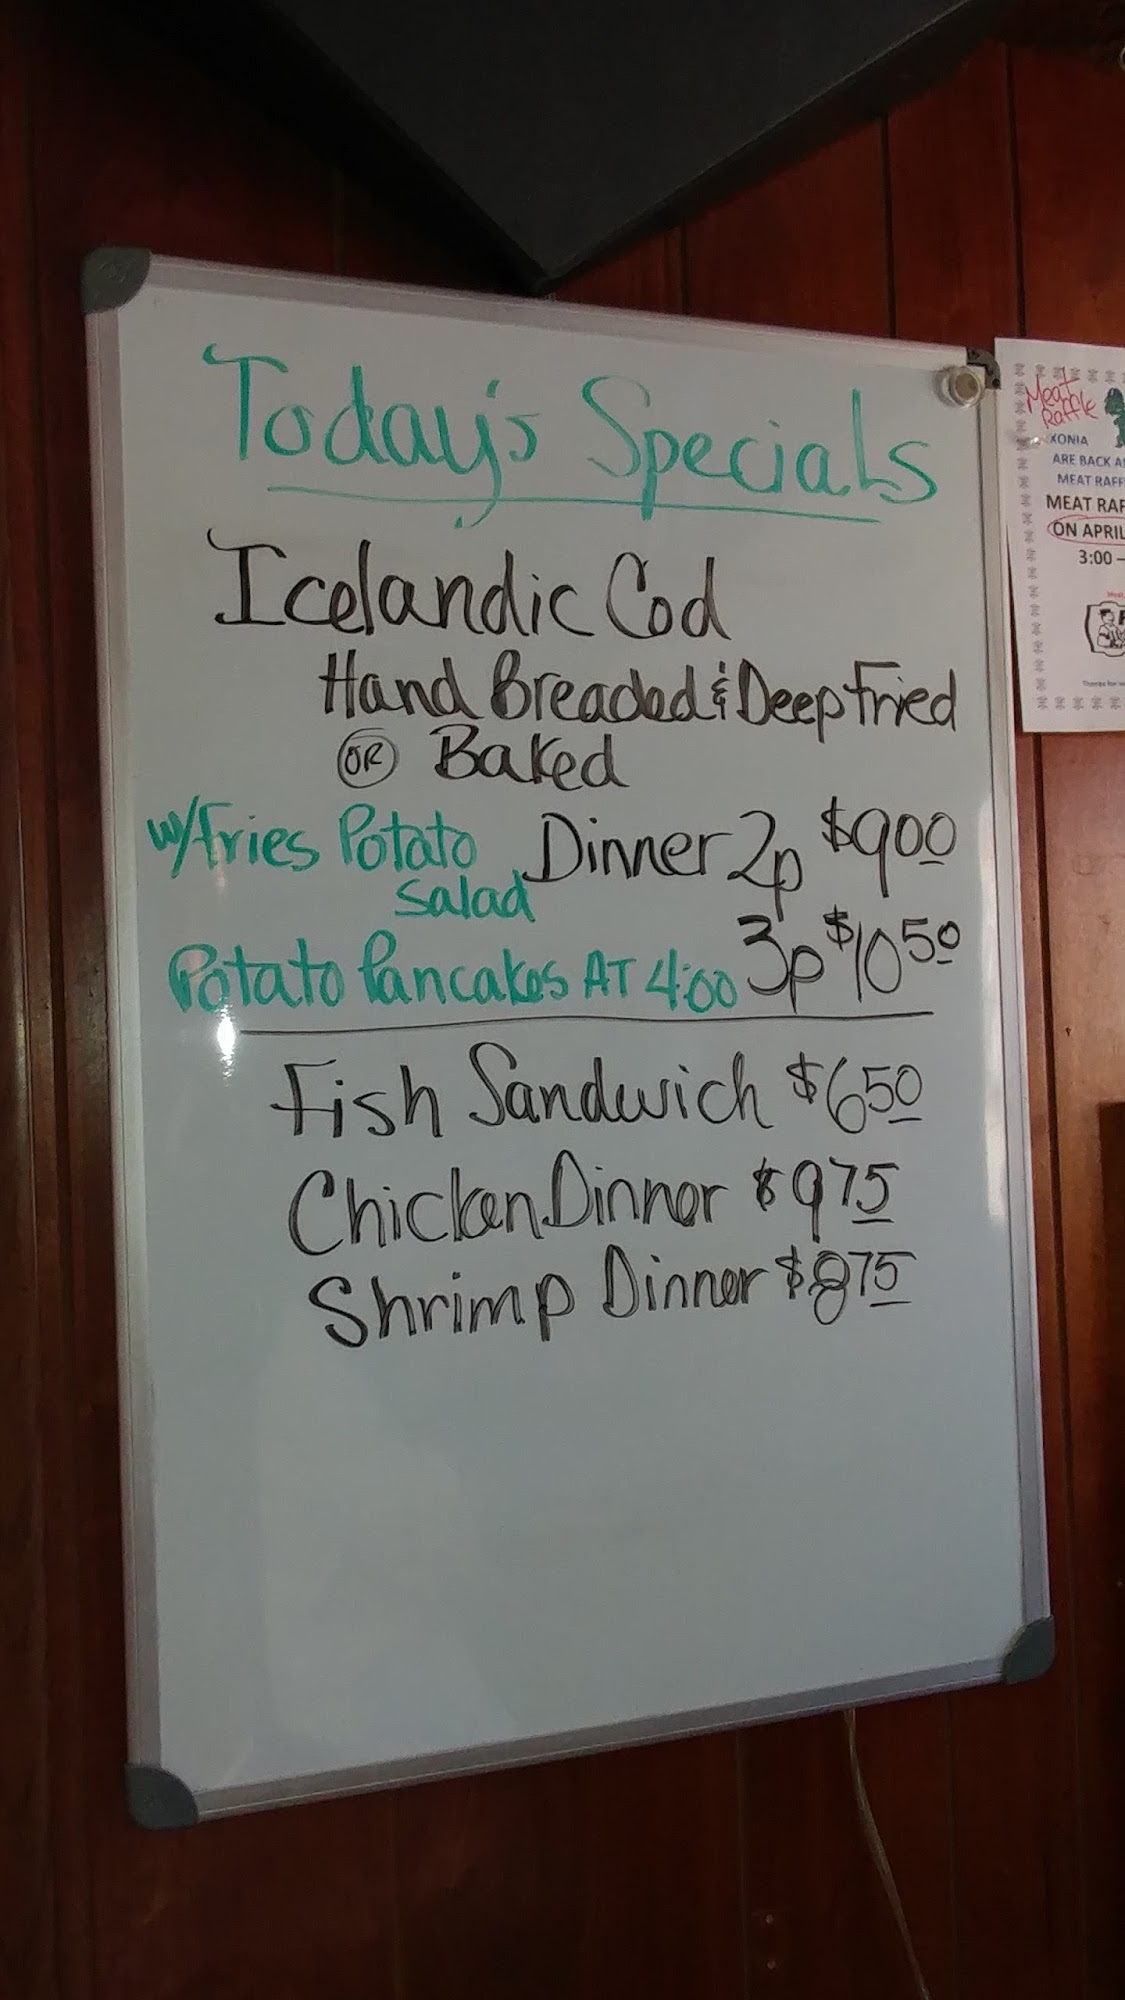 Today's Specials
Icelandic Cod
Hand Breaded & Deep Fried
OR Baked
w/Fries Potato Salad Dinner 2p $9.00
Potato Pancakes AT 4:00 3p $10.50
Fish Sandwich $6.50
Chicken Dinner $9.75
Shrimp Dinner $8.75
Meat
Raffle
XONIA
ARE BACK
MEAT RAFF
MEAT RAF
ON APRIL
3:00 –